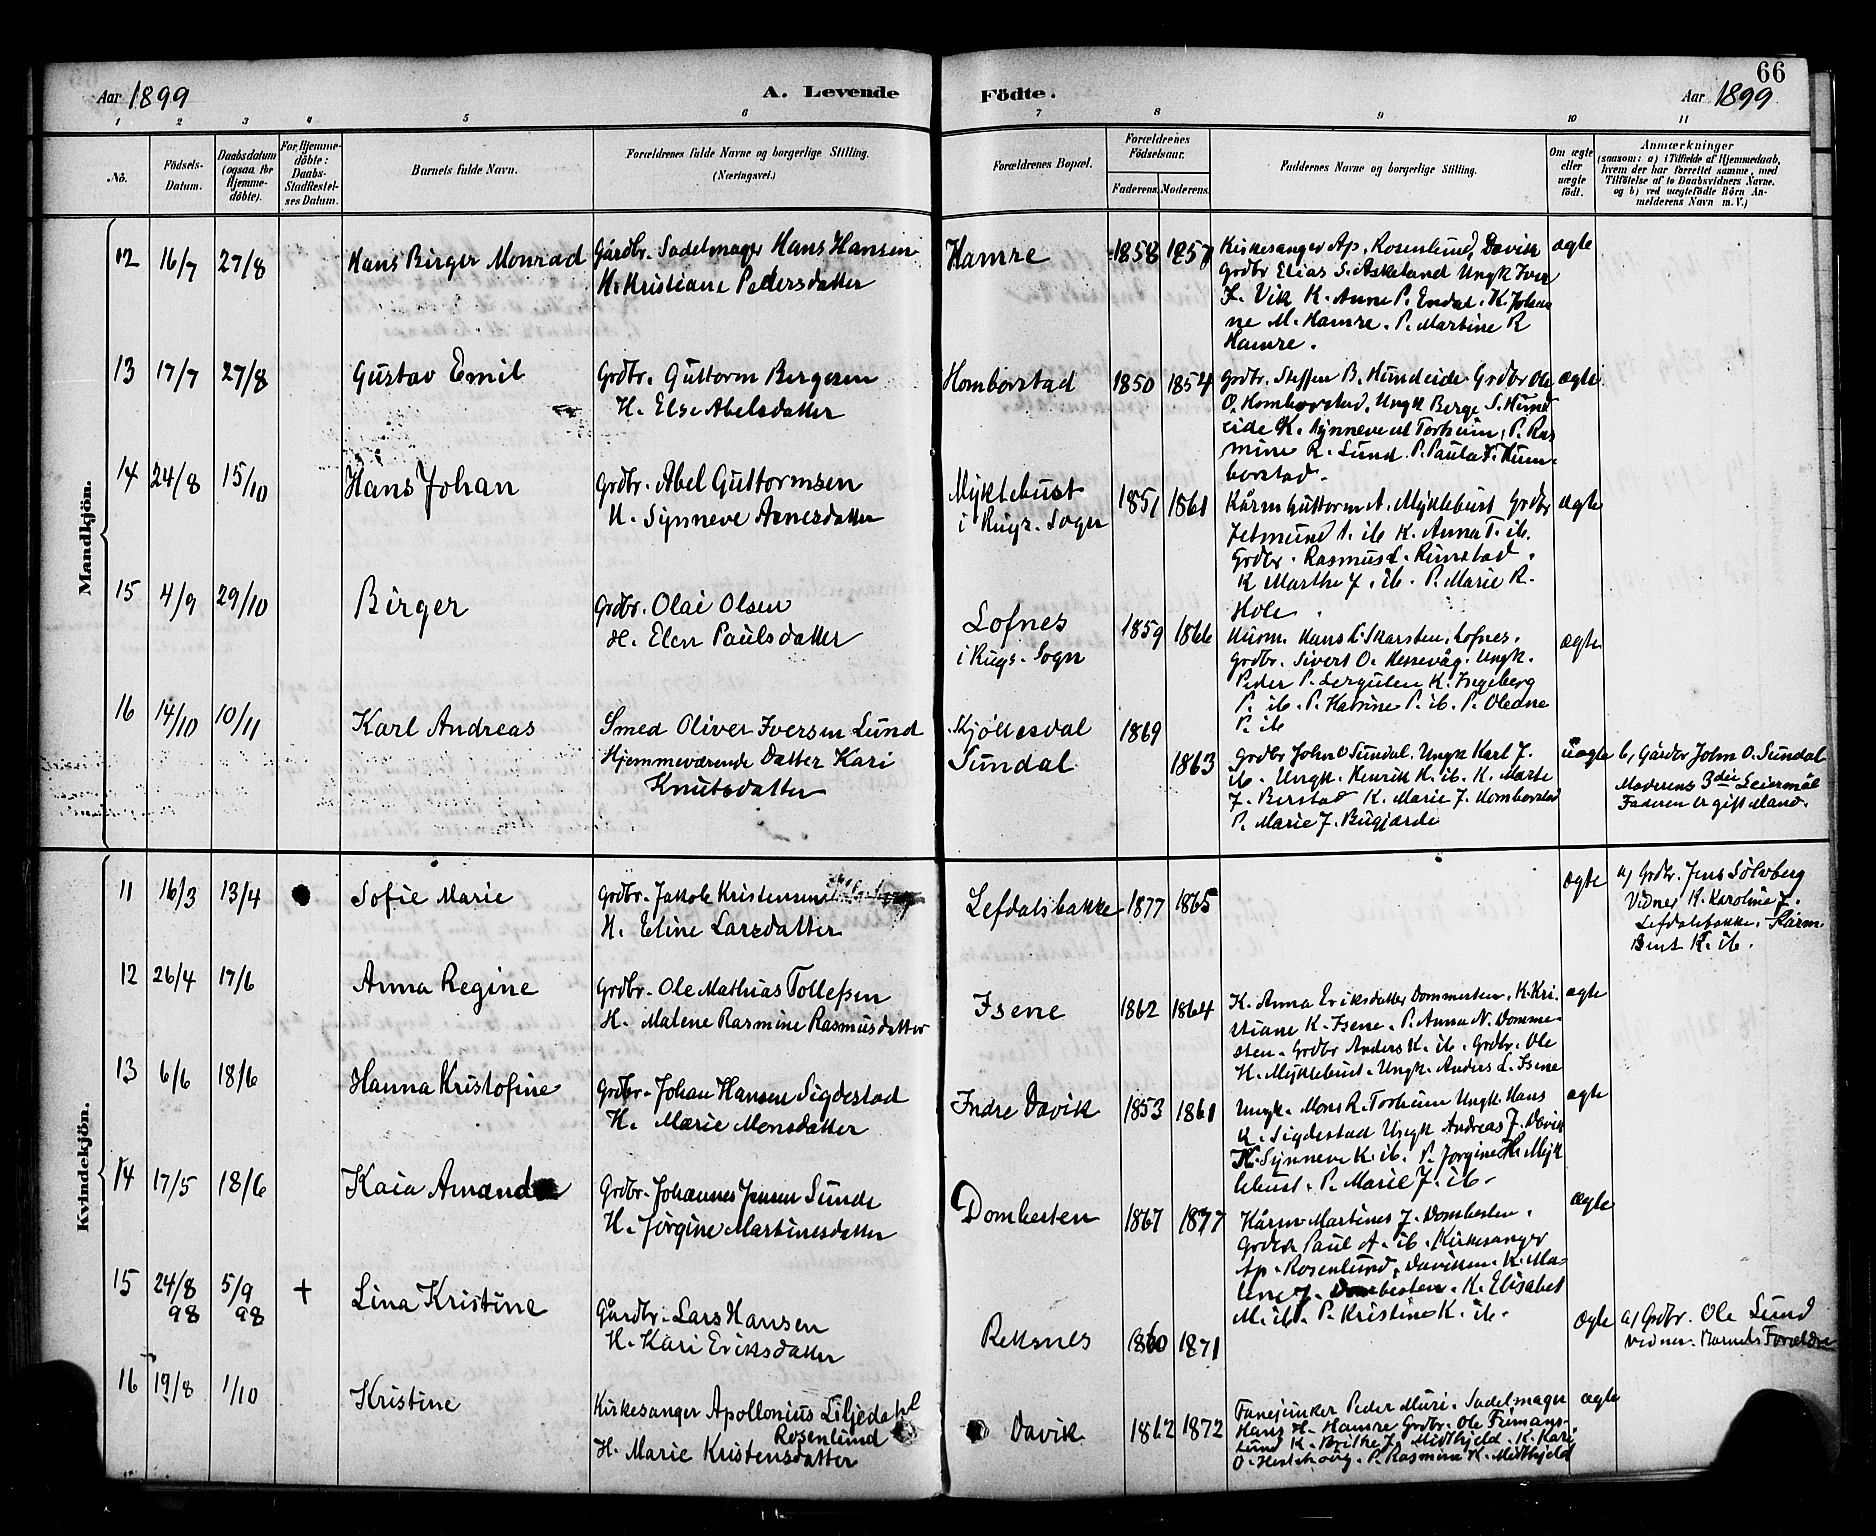 66
Aar 1899 A. Levende Födte. Aar 1899
1 2 3 4 5 6 7 8 9 10 11
No.
Födsels-Datum.
Daabsdatum (ogsaa for Hjemme-döbte).
For Hjemme-döbte: Daabs-Stadfæstel-ses Datum.
Barnets fulde Navn.
Forældrenes fulde Navne og borgerlige Stilling.
(Næringsvei.)
Forældrenes Bopæl.
Forældrenes Födselsaar.
Faderens. Moderens.
Faddernes Navne og borgerlige Stilling.
Om ægte eller uægte födt.
Anmærkninger
(saasom: a) i Tilfælde af Hjemmedaab,
hvem der har forrettet samme, med
Tilföielse af to Daabsvidners Navne.
og b) ved uægtefödte Börn An-
melderens Navn m. V.)
Mandkjön.
12 16/7 27/8 Hans Birger Monrad
Gårdbr. Sadelmager Hans Hansen
H. Kristiane Pedersdatter
Hamre 1858 1857
Kirkesanger Ap. Rosenlund, Davik
Grdbr Elias S. Askeland Ungk Iver
I. Vik K. Anne P. Endal. K. Johan
ne M. Hamre. P. Martine R
Hamre.
ægte
13 17/7 27/8 Gustav Emil
Grdbr. Guttorm Bergesen
H. Else Abelsdatter
Homborstad 1850 1854
Grdbr. Steffen B. Hundeide Grdbr Ole
O. Homborstad. Ungk Berge S. Hund
eide K. Synneve Torheim, P. Ras
mine R. Lund P. Paula Hum-
borstad.
ægte
14 24/8 15/10 Hans Johan
Grdbr. Abel Guttormsen
H. Synneve Arnesdatter
Myklebust
i Rugs. Sogn
1851 1861
Kårm Guttorm A. Myklebust Grdbr
Jetmund ib K. Anna T. ib.
Grdbr. Rasmus L. Rimstad.
K Marthe J. ib. P. Marie R.
Hole.
ægte
15 4/9 29/10 Birger
Grdbr. Olai Olsen
H. Elen Paulsdatter
Lofnes
i Rugs. Sogn
1859 1866
Hans Skarsten, Lofnes.
Grdbr. Sivert O. Hessevåg. Ungk.
Peder P. Lergulen K. Ingeberg
P. ib. P. Katrine P. ib. P. Oledne
P. ib
ægte
16 14/10 10/11 Karl Andreas
Smed Oliver Iversen Lund
Hjemmeværende Datter Kari
Knutsdatter
Skjøllesdal 1869
Sundal 1863
Grdbr John O Sundal. Ungk Karl J.
ib. Ungk. Henrik K. ib. K. Marte
J. Berstad K. Marie J. Homborstad
P. Marie J. Bugjærde
uægte
b, Gårdbr John O. Sundal
Moderens 3die Leiermål
Faderen er gift Mand.
Kvindekjön.
11 16/3 13/4 Sofie Marie
Grdbr. Jakob Kristensen
H. Eline Larsdatter
Lefdalsbakke 1877 1865
ægte
a, Grdbr. Jens Sölvberg
Vidner K. Karoline J.
Lefdalsbakke. Kårm
Bent K. ib.
12 26/4 17/6 Anna Regine
Grdbr. Ole Mathias Tollefsen
H. Malene Rasmine Rasmusdatter
Isene 1862 1864
K. Anna Eriksdatter Dommersten. K. Kri
stiane K. Isene. P. Anna N. Domme-
sten. Grdbr Anders K. ib. Grdbr. Ole
K. Myklebust. Ungk. Anders L. Isene
ægte
13 6/6 18/6 Hanna Kristofine
Grdbr. Johan Hansen Sigdestad
H. Marie Monsdatter
Indre Davik 1853 1861
Ungk. Mons R. Torheim Ungk. Hans
K. Sigdestad Ungk Andreas J. Davik
K. Synneve K. ib. P. Jorgine H. Myk
lebust. P. Marie J. ib.
ægte
14 17/5 18/6 Kaia Amanda
Grdbr. Johannes Jensen Sunde
H. Jörgine Martinesdatter
Dombesten 1867 1877
Kårm Martines J. Dombesten.
Grdbr Paul A. ib. Kirkesanger
Ap. Rosenlund, Daviken. K. Ma-
lene J. Dombesten. K. Elisabet
M. ib. P. Kristine K. ib.
ægte
15 24/8 98 5/9 98 + Lina Kristine
Gårdbr. Lars Hansen
H. Kari Eriksdatter
Reksnes 1860 1871
ægte
a, Grdbr. Ole Lund
Vidner. Barnets Forældre
16 19/8 1/10 Kristine
Kirkesanger Apollonius Liljedahl
Rosenlund
H. Marie Kristensdatter
Davik 1862 1872
Fanejunker Peder Muri. Sadelmager
Hans H. Hamre Grdbr. Ole Frimans-
lund K. Brithe J. Midthjeld. K. Kari
O. P. Rasmine K. Midthjeld
ægte